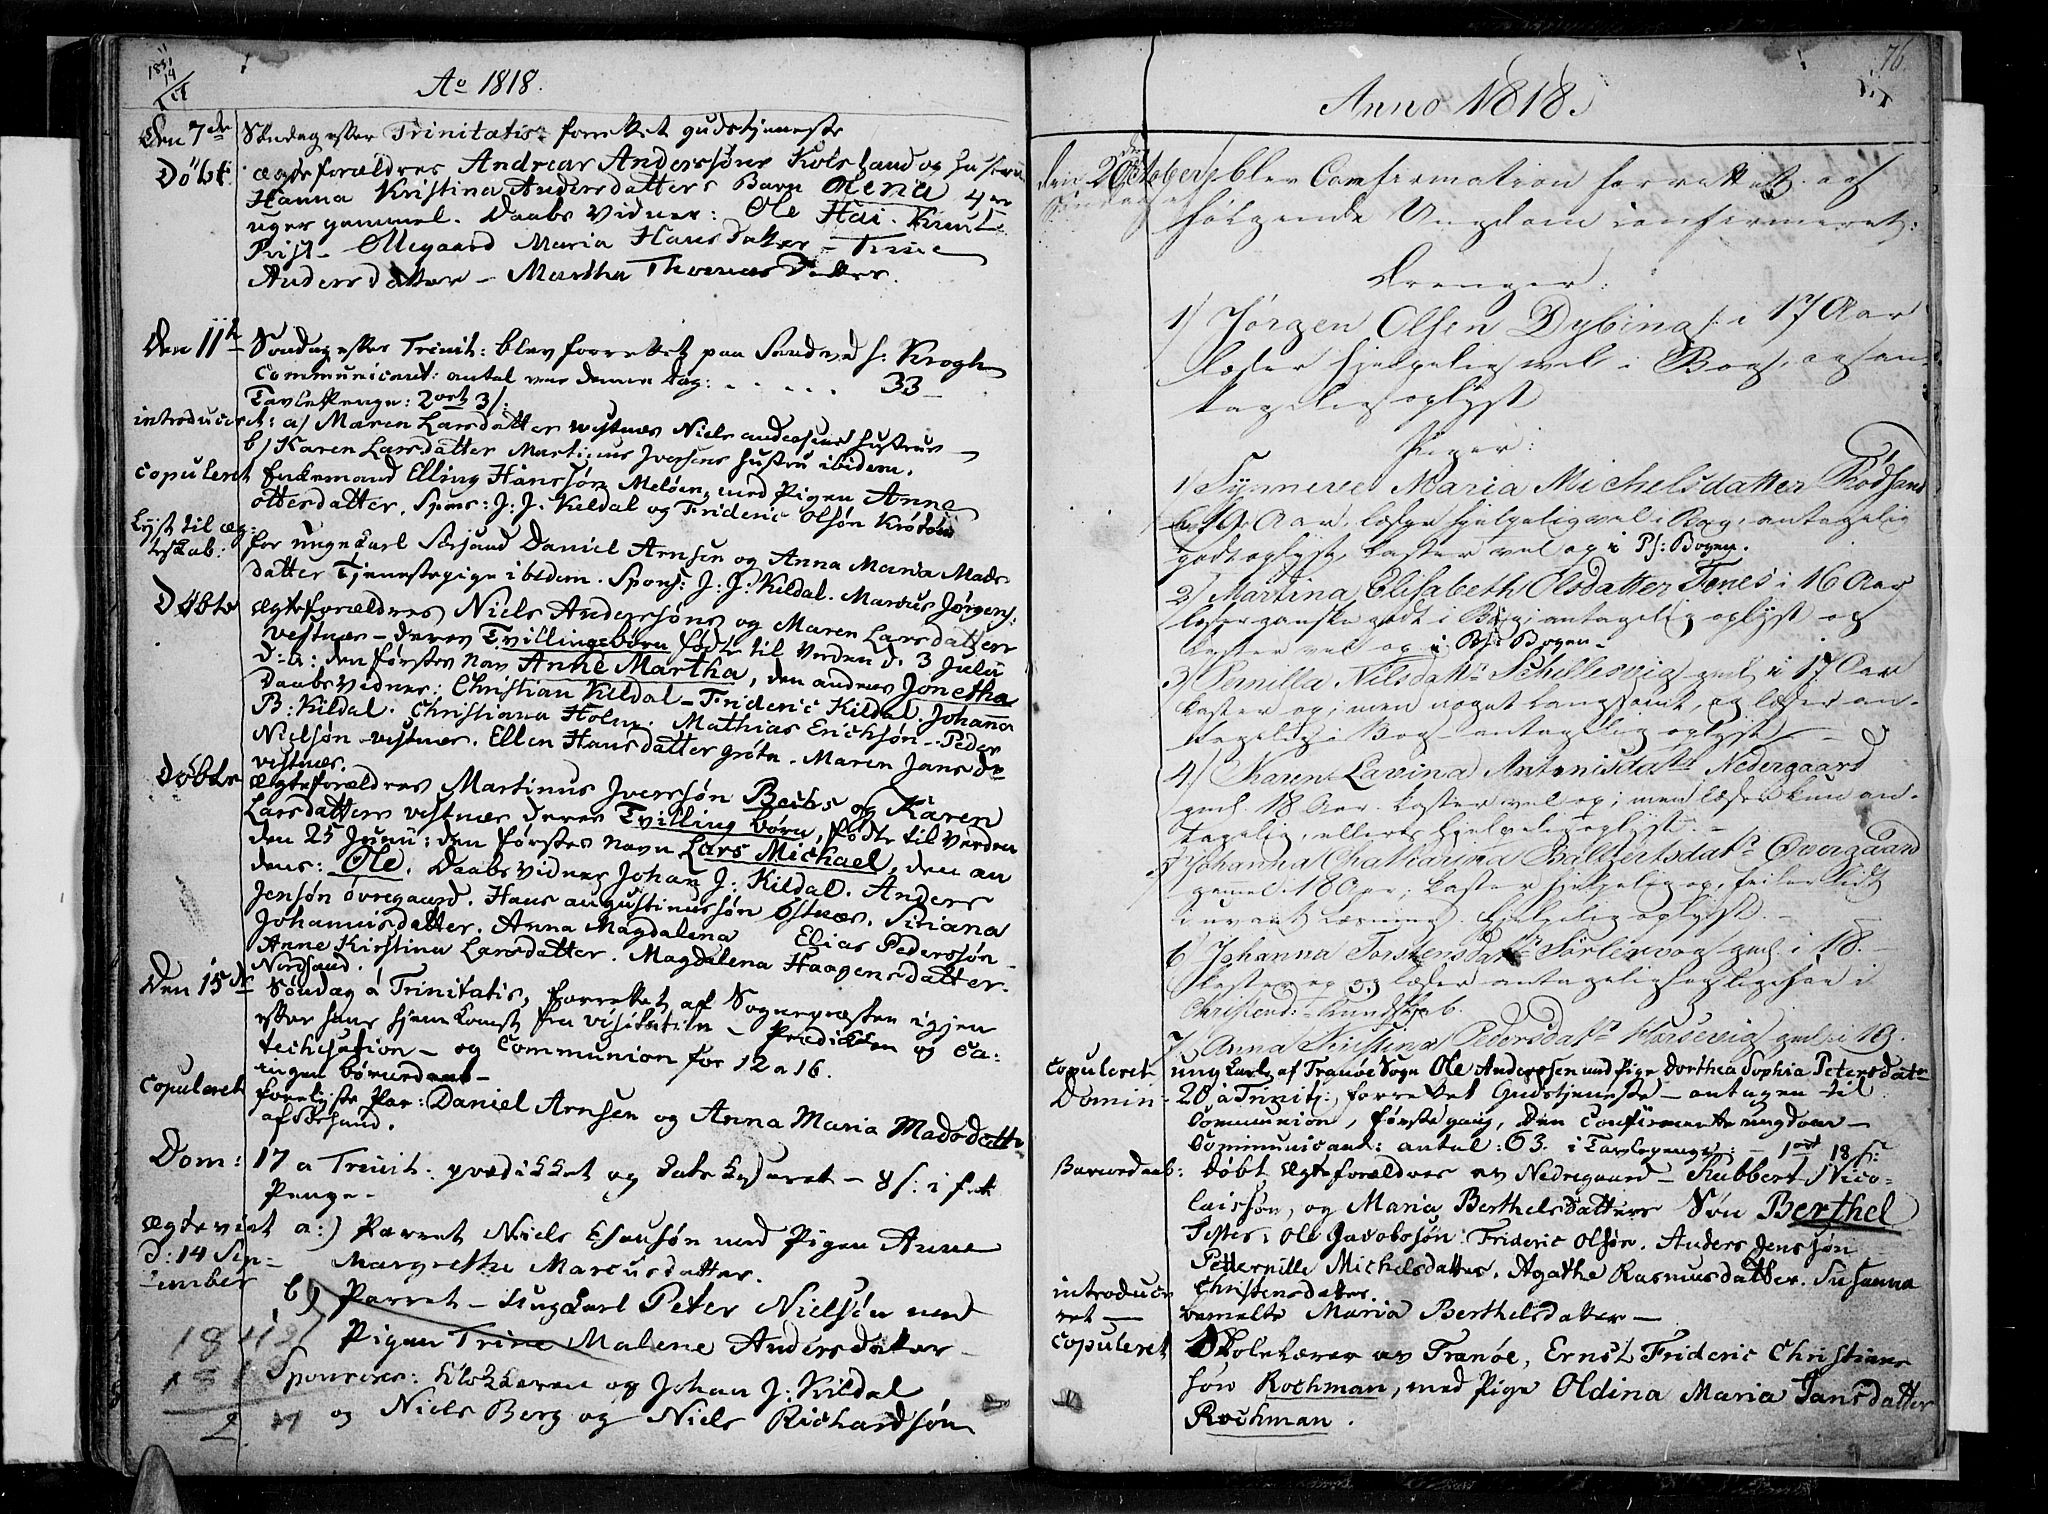 Ao 1818.
Den 7de Søndag efter Trinitatis forrettet gudstjeneste
Døbt ægteforældres Andreas Anderssøns Kolsland og hustrue
Hanna Kristina Andersdatters Barn Olena 4re
uger gammel. Daabs Vidner: Ole Hai. Knut
Ollegaard Maria Hansdatter - Trine
Andersdatter - Martha Thomasdatter.
Den 11te Søndag efter Trinit: blev forrettet paa Sandved H: Krogh
Communicant: antal var denne dag: . . . . . 33
Tavlepenge: 2 ort 3 s:
introduceret: a) Maren Larsdatter westnæs Niels andersens hustrue
b) Karen Larsdatter Martinus Iversens hustru ibidem.
Copuleret Enkemand Elling Hanssøn Meløen, med Pigen Anne
ottersdatter, Spons: J. J. Kildal og Frideric Olsøn
Lyst til æg-
teskab: for unge karl Daniel Arnsen og Anna Maria Mads
datter Tjenestepige ibidem. Spons: J. J. Kildal. Marcus Jørgens:
Døbte ægteforældres Niels Anderssøns og Maren Larsdatters
vestnæs - deres Tvillingebørn fødte til verden d. 3 Julii
d: a: den førstes nav Anne Martha, den andres Jonetha
Daabsvidner: Christian Kildal - Frideric Kildal. Johanna
B: Kildal. Christiana Holm. Mathias Erichsøn - Peder
Nielsøn vestnæs. Ellen Hansdatter grøtn. Maren Jansdr
vestnæs.
Døbte ægteforældres Martinus Iverssøn Bechs og Karen
Larsdatters vestnæs deres Tvilling børn, fødte til Verden
den 25 Junii: den førstes navn Lars Michael, den an
dens: Ole. Daabsvidner Johan J: Kildal. Anders
Jensøn øvregaard. Hans augustinussøn østnæs. Siriana
Johannisdatter. Anna Magdalena Elias Pederssøn
Anne Kirstina Larsdatter. Magdalena Haagensdatter.
Nordsand.
Den 15de Søndag a Trinitatis, forrettet af Sognepræsten igjen
efter hans hjemkomst fra visitatien - Prædicken og Ca:
techisation - og Communion for 12 a 16.
ingen børnedaab -
Copuleret foreløste Par: Daniel Arnsen og Anna Maria Madsdatter
af
Dom: 17 a Trinit: prædikket og Catekiseret - 8 s: i
Penge.
Ægteviet a:) Parret Niels Esausøn med Pigen Anne
d: 14 Sep-
tember Margrethe Marcusdatter.
b) Parret - Ungkarl Peter Nielsøn med
Pigen Trine Malene Andersdatter -
Sponsores: Klokkeren og Johan J: Kildal
og Niels Berg og Niels Richardsøn
76.
Anno 1818.
October blev Confirmation forrettet og
følgende Ungdom confirmeret:
Drenger:
1) Jørgen Olsen Dybing i 17 Aar
læser hjelpelig vel i Bog, og an-
tagelig oplyst
Piger:
1) Synneve Maria Michelsdatter Rødsand
19 Aar, læser hjelpelig vel i Bog, antagelig
godt oplyst, kaster vel op i Ps: Bogen.
2) Martina Elisabeth Olsdatter Fenes i 16 Aar
læser ganske godt i Bog, antagelig oplyst og
kaster vel op i Ps: Bogen.
3) Pernilla Nilsdatr Schellesvig gml i 17 Aar
kaster op, men noget langsomt, og læser an-
tagelig i Bog antagelig oplyst
4) Karen Lavina Antonisdatr Nedergaard
gml. 18 Aar. kaster vel op; men læser kun an-
tagelig, ellers hjelpelig oplyst. -
5 Johanna Chatharina Baltzersdatr Overgaard
gamel 18 Aar, kaster hjelpelig op, feiler lidt
i uvant Læsning. hjelpelig oplyst. -
6 Johanna Torstensdatr gml. i 18.
kaster op og læser antagelig i
Christend: Kundskab.
7. Anna Kristina Pedersdatr gml. i 19.
Copuleret ung karl af Tranøe Sogn Ole Anderssen med Pige Dorthea Sophia Petersdatr
Domin: 20 a Trinit: forrettet Gudstjeneste - antagen til
Communion, første gang, Den Confirmerte ungdom -
Communicant: antal: 63. i Tavlepenge: - 1 ort 18 s:
Barnedaab: Døbt Ægteforældres av Nedregaard - Hubbert Nico-
laissøn, og Maria Berthelsdatters Søn Berthel
Testes: Ole Jacobsøn. Frideric Olsøn. Anders Jenssøn
Petternille Michelsdatter. Agathe Rasmusdatter. Susanna
Christensdatter.
introduce
ret - bemelte Maria Berthelsdatter -
Copuleret Skolelærer av Tranøe, Ernst Frideric Christians
søn Rochman, med Pige Oldina Maria Jansdatter
Rochman.